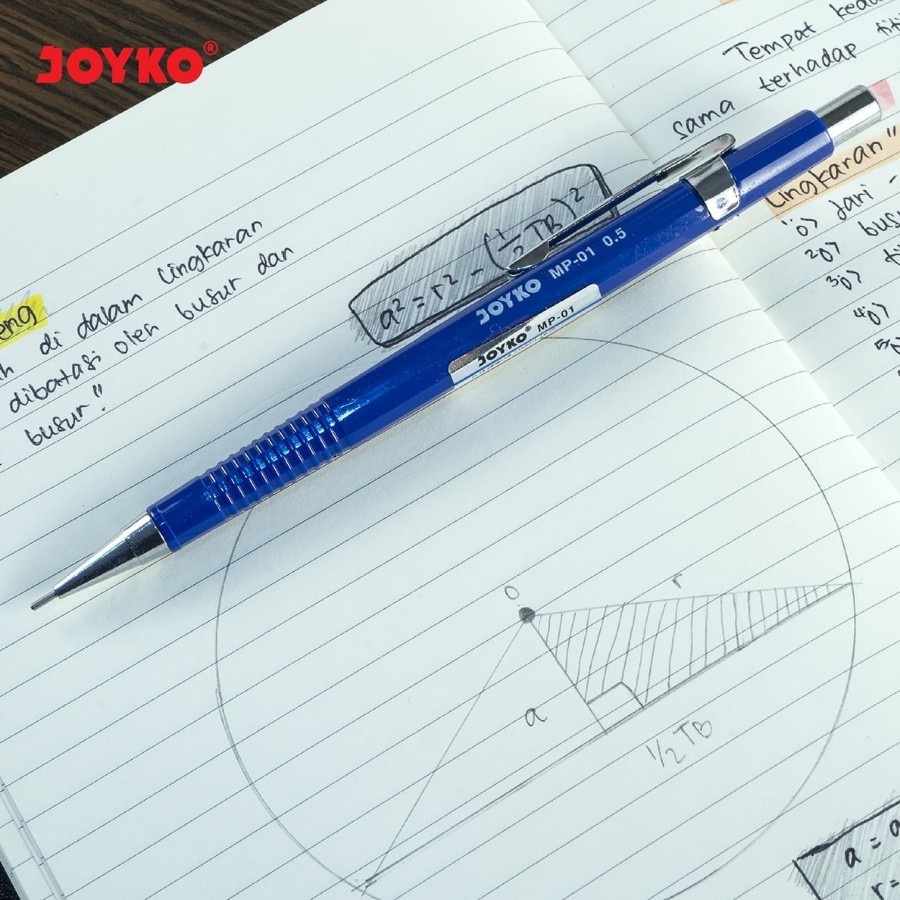 JOYKO®
Tempat
sama terhadap titi
Lingkaran"
1o) Jari -
2o) busu
3o) t
4o)
eng
h di dalam lingkaran
dibatasi oleh busur dan
busur."
a² = r² - (½ TB)²
JOYKO MP-01 0.5
JOYKO® MP-01
O
r
a
1/2 TB
a = a
r =